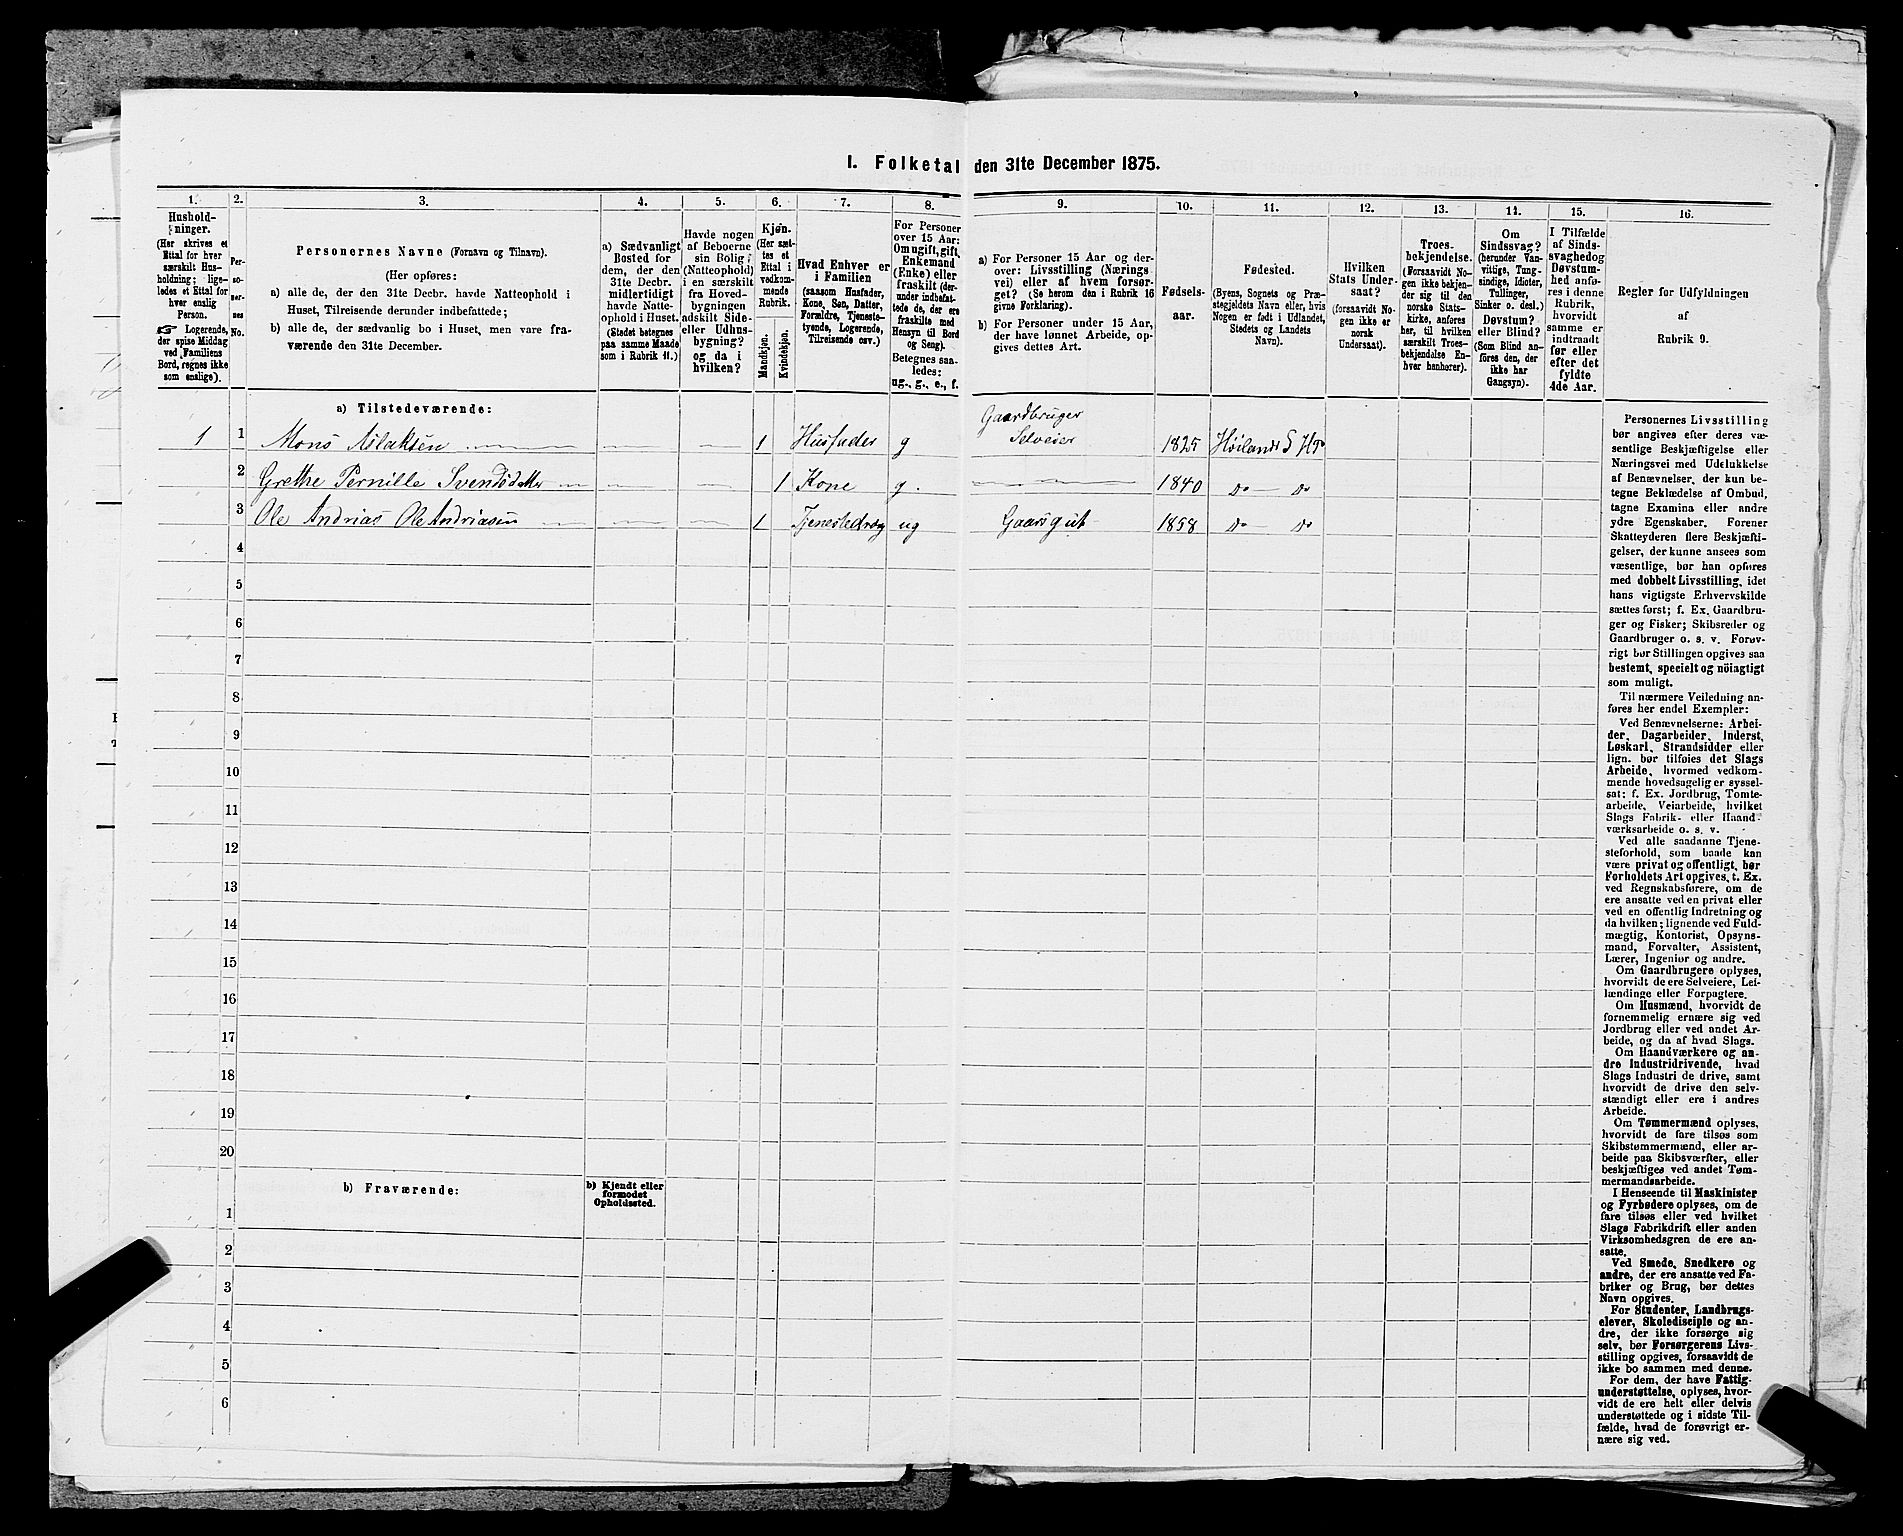 I. Folketal den 31te December 1875.
1.
2.
3.
4.
5.
6.
7.
8.
9.
10.
11.
12.
13.
14.
15.
16.
Hushold-
ninger.
(Her skrives et
Ettal for hver
særskilt Hus-
holdning; lige-
ledes et Ettal for
hver enslig
Person.
☞ Logerende,
der spise Middag
ved Familiens
Bord, regnes ikke
som enslige).
Per-
so-
ner-
nes
No.
Personernes Navne (Fornavn og Tilnavn).
(Her opføres:
a) alle de, der den 31te Decbr. havde Natteophold i
Huset, Tilreisende derunder indbefattede;
b) alle de, der sædvanlig bo i Huset, men vare fra-
værende den 31te December.
a) Sædvanligt
Bosted for
dem, der den
31te Decbr.
midlertidigt
havde Natte-
ophold i Huset.
(Stedet betegnes
paa samme Maade
som i Rubrik 11.)
Havde nogen
af Beboerne
sin Bolig
(Natteophold)
i en særskilt
fra Hoved-
bygningen
adskilt Side-
eller Udhus-
bygning?
og da i
hvilken?
Kjøn.
(Her sæt-
tes et
Ettal i
vedkom-
mende
Rubrik.
Mandkjøn.
Kvindekjøn.
Hvad Enhver er
i Familien
(saasom Husfader,
Kone, Søn, Datter,
Forældre, Tjeneste-
tyende, Logerende,
Tilreisende osv.)
For Personer
over 15 Aar:
Om ugift, gift,
Enkemand
(Enke) eller
fraskilt (der-
under indbefat-
tede de, der ere
fraskilte med
Hensyn til Bord
og Seng).
Betegnes saa-
ledes:
ug., g., e., f.
a) For Personer 15 Aar og der-
over: Livsstilling (Nærings-
vei) eller af hvem forsør-
get? (Se herom den i Rubrik 16
givne Forklaring).
b) For Personer under 15 Aar,
der have lønnet Arbeide, op-
gives dettes Art.
Fødsels-
aar.
Fødested.
(Byens, Sognets og Præ-
stegjeldets Navn eller, hvis
Nogen er født i Udlandet,
Stedets og Landets
Navn).
Hvilken
Stats Under-
saat?
(forsaavidt No-
gen ikke er
norsk
Undersaat).
Troes-
bekjendelse.
(Forsaavidt No-
gen ikke bekjen-
der sig til den
norske Stats-
kirke, anføres
her, til hvilken
særskilt Troes-
bekjendelse En-
hver henhører).
Om
Sindssvag?
(herunder Van-
vittige, Tung-
sindige, Idioter,
Tullinger,
Sinker o. desl.)
Døvstum?
eller Blind?
(Som Blind an-
føres den, der
ikke har
Gangsyn).
I Tilfælde
af Sinds-
svaghed og
Døvstum-
hed anfø-
res i denne
Rubrik,
hvorvidt
samme er
indtraadt
før eller
efter det
fyldte
4de Aar.
Regler for Udfyldningen
af
Rubrik 9.
a) Tilstedeværende:
1 1 Mons Aslaksen 1 Husfader g Gaardbruger
Selveier 1825 Høilands S HP
2 Grethe Pernille Svendsdatter 1 Kone g. 1840 do do
3 Ole Andrias Ole Andriasen 1 Tjenestedreng ug Gaardsgut 1858 do do
4
5
6
7
8
9
10
11
12
13
14
15
16
17
18
19
20
b) Fraværende:
b) Kjendt eller
formodet
Opholdssted.
1
2
3
4
5
6
Personernes Livsstilling
bør angives efter deres væ-
sentlige Beskjæftigelse eller
Næringsvei med Udelukkelse
af Benævnelser, der kun be-
tegne Beklædelse af Ombud,
tagne Examina eller andre
ydre Egenskaber. Forener
Skatteyderen flere Beskjæfti-
gelser, der kunne ansees som
væsentlige, bør han opføres
med dobbelt Livsstilling, idet
hans vigtigste Erhvervskilde
sættes først; f. Ex. Gaardbru-
ger og Fisker; Skibsreder og
Gaardbruger o. s. v. Forøv-
rigt bør Stillingen opgives saa
bestemt, specielt og nöiagtigt
som muligt.
Til nærmere Veiledning an-
føres her endel Exempler:
Ved Benævnelserne: Arbei-
der, Dagarbeider, Inderst,
Løskarl, Strandsidder eller
lign. bør tilføies det Slags
Arbeide, hvormed vedkom-
mende hovedsagelig er syssel-
sat; f. Ex. Jordbrug, Tomte-
arbeide, Veiarbeide, hvilket
Slags Fabrik- eller Haand-
værksarbeide o. s. v.
Ved alle saadanne Tjene-
steforhold, som baade kan
være privat og offentligt, bør
Forholdets Art opgives, t. Ex.
ved Regnskabsførere, om de
ere ansatte ved en privat eller
ved en offentlig Indretning og
da hvilken; lignende ved Fuld-
mægtig, Kontorist, Opsyns-
mand, Forvalter, Assistent,
Lærer, Ingeniør og andre.
Om Gaardbrugere oplyses,
hvorvidt de ere Selveiere, Lei-
lændinge eller Forpagtere.
Om Husmænd, hvorvidt de
fornemmelig ernære sig ved
Jordbrug eller ved andet Ar-
beide, og da af hvad Slags.
Om Haandværkere og an-
dre Industridrivende, hvad
Slags Industri de drive, samt
hvorvidt de drive den selv-
stændigt eller ere i andres
Arbeide.
Om Tømmermænd oplyses,
hvorvidt de fare tilsøs som
Skibstømmermænd, eller ar-
beide paa Skibsværfter, eller
beskjæftiges ved andet Tøm-
mermandsarbeide.
I Henseende til Maskinister
og Fyrbødere oplyses, om de
fare tilsøs eller ved hvilket
Slags Fabrikdrift eller anden
Virksomhedsgren de ere an-
satte.
Ved Smede, Snedkere og
andre, der ere ansatte ved Fa-
briker og Brug, bør dettes
Navn opgives.
For Studenter, Landbrugs-
elever, Skoledisciple og an-
dre, der ikke forsørge sig
selv, bør Forsørgerens Livs-
stilling opgives, forsaavidt de
ikke bo sammen med denne.
For dem, der have Fattig-
understøttelse, oplyses, hvor-
vidt de ere helt eller delvis
understøttede og i sidste Til-
fælde, hvad de forøvrigt er-
nære sig ved.